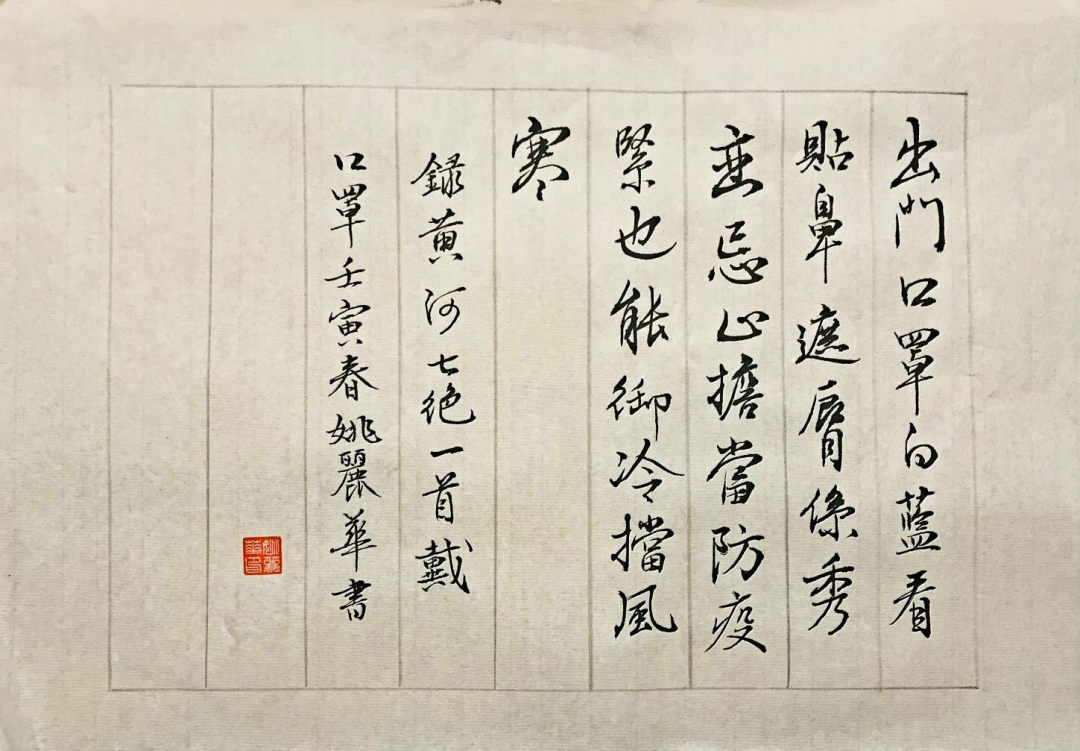 出門口罩白藍看
貼鼻遮脣係秀
巒忌擔當防疫
緊也能御冷擋風
寒
録黄河七绝一首戴
口罩壬寅春姚麗華書